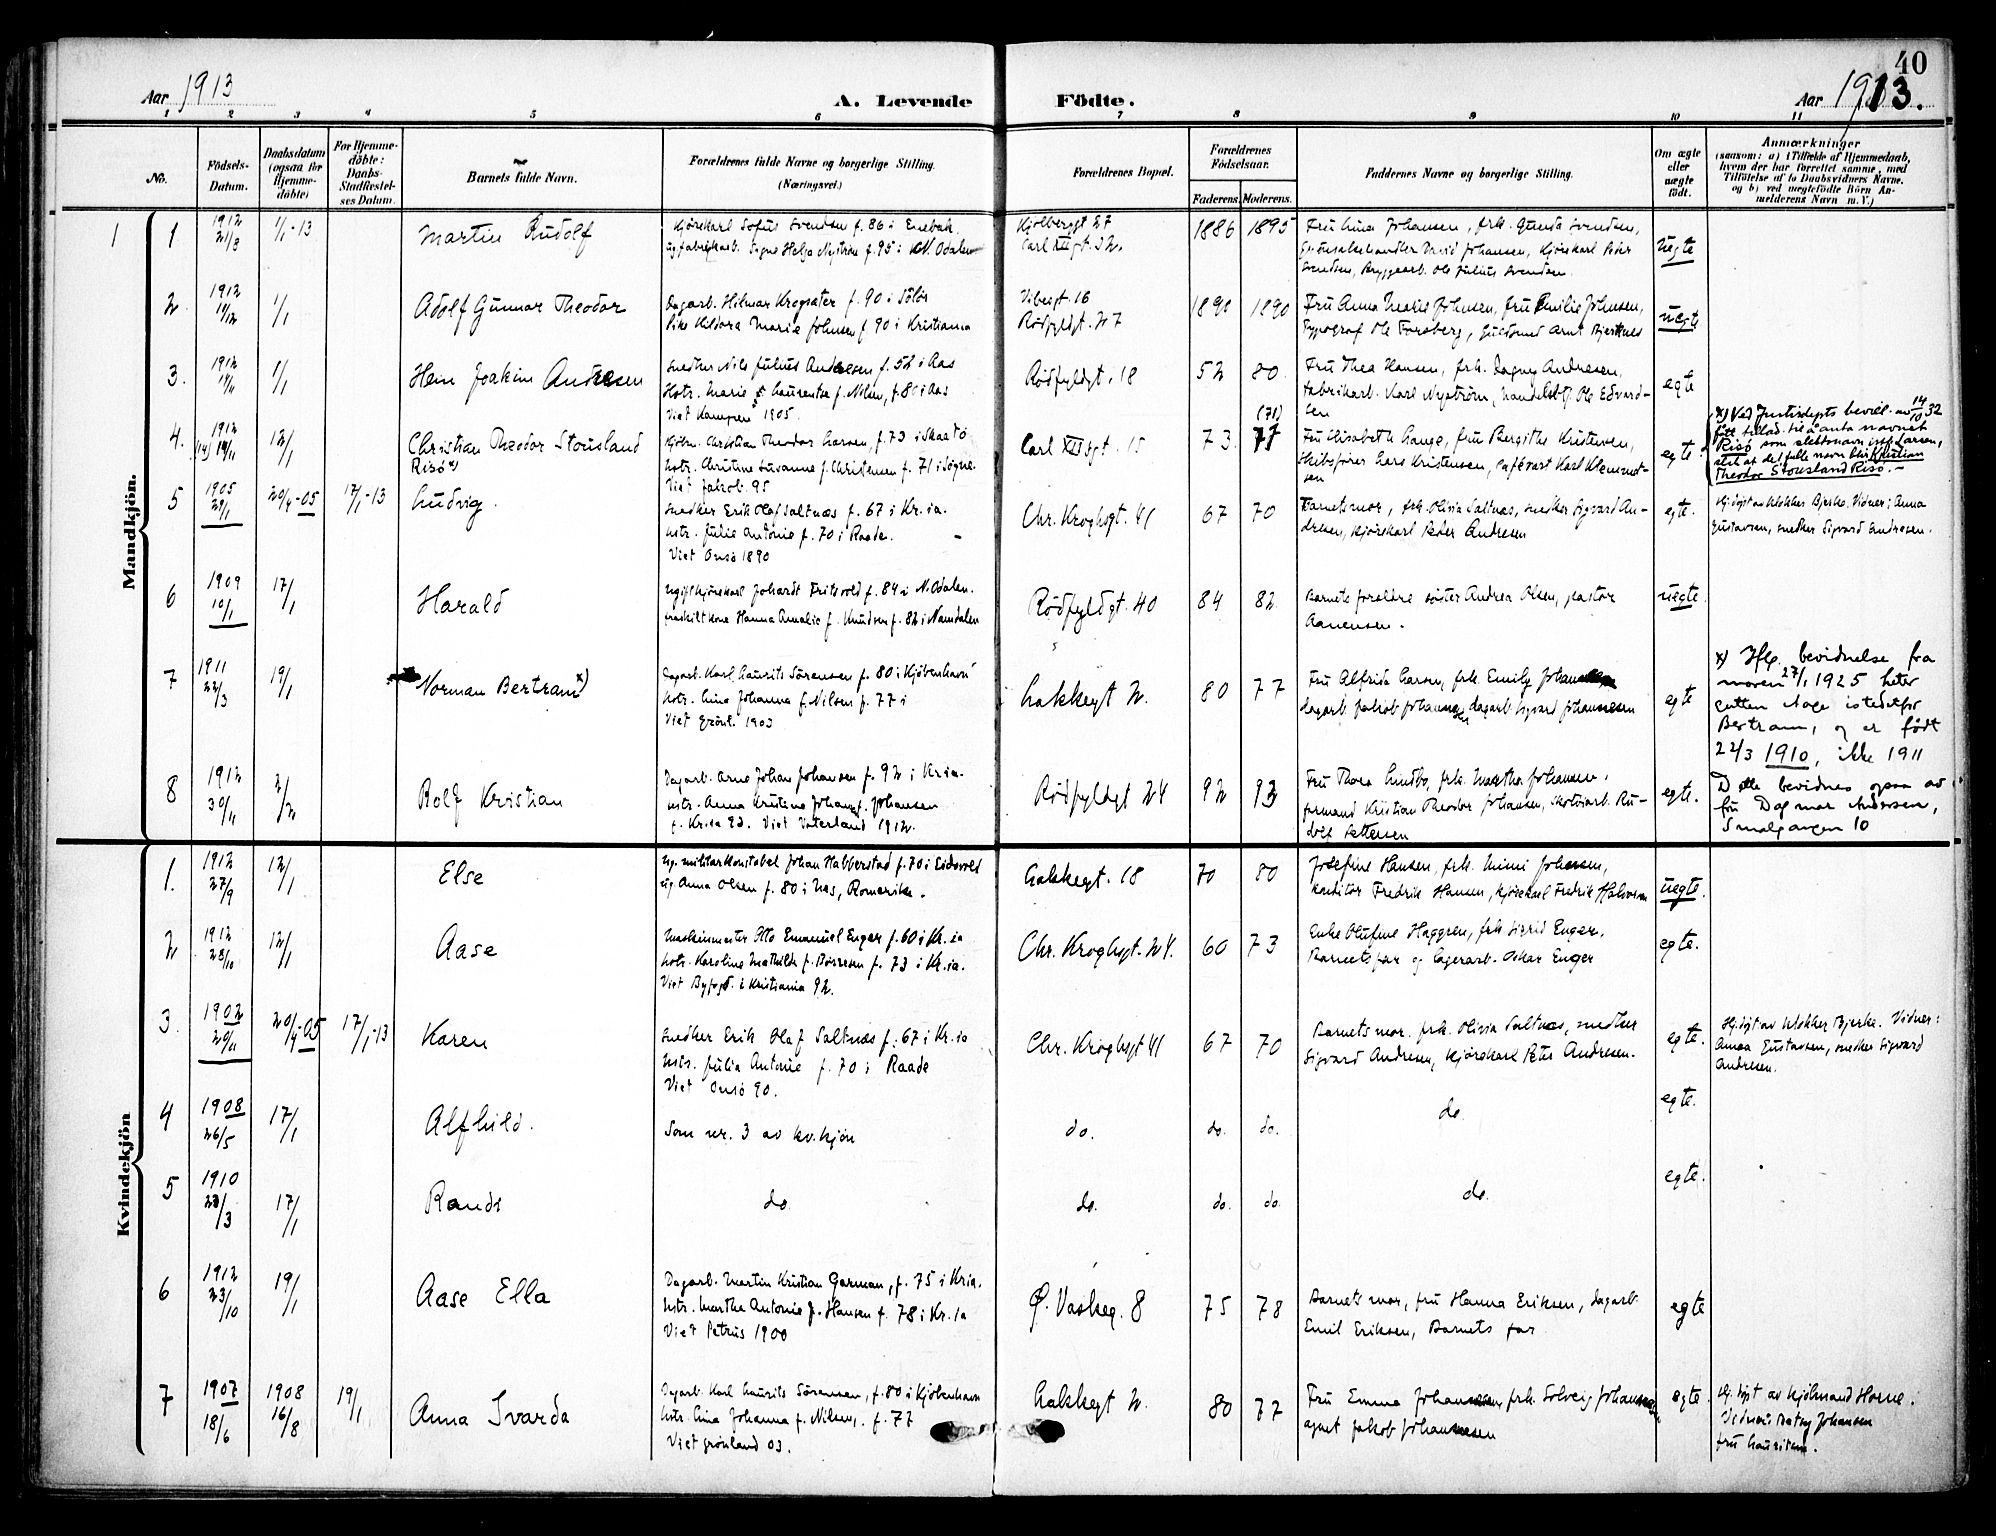 40
Aar 1913
A. Levende
Födte.
Aar 1913.
1 2 3 4 5 6 7 8 9 10 11
No.
Födsels-
Datum.
Daabsdatum
(ogsaa for
Hjemme-
döbte)
For Hjemme-
döbte:
Daabs-
Stadfæstel-
ses Datum.
Barnets fulde Navn.
Forældrenes fulde Navne og borgerlige Stilling.
(Næringsvei.)
Forældrenes Bopæl.
Forældrenes
Födselsaar.
Faderens. Moderens.
Faddernes Navne og borgerlige Stilling.
Om ægte
eller
uægte
födt.
Anmærkninger
(saasom: a) i Tilfælde af Hjemmedaab,
hvem der har forrettet samme, med
Tilföielse af to Daabsvidners Navne.
og b) ved uegtefödte Börn An-
melderens Navn m. V.)
Mandkjön.
1 1 1912 21/8 1/1-13
Martin Rudolf
Kjörekarl Sofus Svendsen f. 86 i Enebak.
ug fabrikarb. Signe Helga Nyström f. 95 i N. Odalen
Kjölberggt 27
Carl XIIgt. 32.
1886 1895
Fru Lina Johansen, frk. Gunda Svendsen,
David Johansen, Kjörekarl Peder
Svendsen, Bryggearb. Ole Julius Svendsen.
uegte
2. 1912 1/1
Adolf Gunnar Theodor
Dagarb. Hilmar Krogsæter f. 90 i Solör
Pike Hildora Marie Johnsen f 90 i Kristiania
Vibesgt. 16
Rödfyldgt. 27
1890 1890
Fru Anna Marie Johnsen, fru Emilie Johnsen,
Typograf Ole Forsberg, Guldsmed Arnt Bjerknes
uegte
3. 1912 1/1
Hein Joakim Andresen
Snedker Nils Julius Andresen f. 52 i Aas
Hstr. Marie Laurentse f. Nilsen, f. 80 i Aas
Viet Kampen 1905.
Rödfyldgt. 18
52 80
Fru Thea Hansen, frk. Dagny Andresen,
fabrikarb. Karl Nyström, handelsbtj. Ole Edvard-
sen
egte
4. 1912 (14) 19/11 12/1
Christian Theodor Stousland
Risö x)
Christian Theodor Larsen, f. 73 i Skaatö
hstr. Christine Susanne f. Christensen f. 71 i Sögne.
Viet Jakob. 95
Carl XIIsgt. 15
73. (71) 77
Fru Elisabeth Lange, fru Bergithe Kristensen,
Skibsförer Lars Kristensen, cafévært Karl Klemmet-
sen
egte
x) Ved Justisdepts bevill. av 14/10 32
fått tillad. til å anta navnet
Risö som slektsnavn istf. Larsen,
slik at det fulle navn blir Kristian
Theodor Stousland Risö.-
5 1905 29/1 20/4-05 17/1-13
Ludvig.
Snedker Erik Olaf Saltnæs f. 67 i Kr.ia.
hstr. Julie Antonie f. 70 i Raade.
Viet Onsö 1890
Chr. Kroghsgt. 41
67 70
Barnets mor, frk. Olivia Saltnæs, snedker Sigvard An-
dresen, kjörekarl Peder Andresen
egte.
Hj. döpt av klokker Bjerke. Vidner: Anna
Gustavsen, snedker Sigvard Andresen.
6 1909 10/1 17/1
Harald
Ugift kjörekarl Johardt Fritsvold f. 84 i N. Odalen.
fraskilt kone Hanna Amalie f. Knudsen f. 82 i Namdalen
Rödfyldgt. 40
84 82
Barnets foreldre söster Andrea Olsen, pastor
Aanensen.
uegte.
7 1911 22/3 19/1
Norman Bertram x)
Dagarb. Karl Laurits Sörensen f. 80 i Kjöbenhavn
hstr. Lina Johanna f. Nilsen f. 77 i
Viet Grönl. 1903
Lakkegt 2.
80 77
Fru Alfrida Larsen, frk. Emily Johannesen
dagarb. Jakob Johannesen, dagarb. Sigvard Johannesen
egte
x) Iflg. bevidnelse fra
moren 27/1 1925 heter
gutten Aage istedetfor
Bertram, og er född
22/3 1910, ikke 1911
Dette bevidnes ogsaa av
fru Dagmar Andersen,
Smalgangen 10
8 1912 30/11 2/2
Rolf Kristian
Dagarb. Arne Johan Johansen f. 92 i Kria.
hstr. Anna Kristine Johans f. Johansen
f. Kr.ia 93. Viet Vaterland 1912.
Rödfyldgt 24
92 93
Fru Thora Lindbo, frk. Martha Johansen,
formand Kristian Theodor Johansen, skotöiarb. Ru-
dolf Pettersen
egte.
Kvindekjön
1. 1912 27/9 12/1
Else
Ug. militærkonstabel Johan Habberstad f. 70 i Eidsvold
ug. Anna Olsen f. 80 i Nes, Romerike.
Lakkegt. 18
70 80
Josefine Hansen, frk. Mimi Johansen,
konditor Fredrik Hansen, kjörekarl Fredrik Halvorsen
uegte.
2 1912 28/10 12/1
Aase
Maskinmester Otto Emanuel Enger f. 60 i Kr.ia
hstr. Karoline Mathilde f. Börresen f. 73 i Kr.ia.
Viet Byfogd. i Kristiania 92.
Chr. Kroghsgt. 24.
60 73
Enke Olufine Haggren, frk Sigrid Enger,
Barnets far og lagerarb. Oskar Enger
egte.
3. 1902 20/11 20/4-05 17/1-13
Karen
Snedker Erik Olaf Saltnæs f. 67 i Kr.ia
hstr. Julia Antonie f. 70 i Raade
Viet Onsö 90.
Chr. Kroghsgt 41
67 70
Barnets mor. frk. Olivia Saltnæs, snedker
Sigvard Andresen, kjörekarl Peter Andresen.
egte.
Hj. döpt av klokker Bjerke. Vidner:
Anna Gustavsen, snedker Sigvard
Andresen.
4 1908 26/5 17/1
Alfhild.
Som nr. 3 av kv.kjön
do. do. do. do.
egte.
5 1910 23/3 17/1
Randi
do. do. do. do. do.
egte.
6 1912 23/10 19/1
Aase Ella
Dagarb. Martin Kristian Garman, f. 75 i Kria.
hstr. Martha Antonie f. Hansen f. 78 i Kr.ia
Viet Petrus 1900
Ø. Vaskeg. 8
75 78
Barnets mor, fru Hanna Eriksen, dagarb.
Emil Eriksen, Barnets far.
egte
7 1907 18/6 1908 16/8 19/1
Anna Svarda
Dagarb. Karl Laurits Sörensen, f. 80 i Kjöbenhavn
hstr. Lina Johanna f. Nilsen, f. 77
Viet Grönland 03.
Lakkegt 2.
80 77
Fru Emma Johannesen, frk. Solveig Johannesen
agent Jakob Johannesen
egte.
Hj. döpt av kjöbmand Horne.
Vidner: Betsy Johansen
fru Lauritsen.